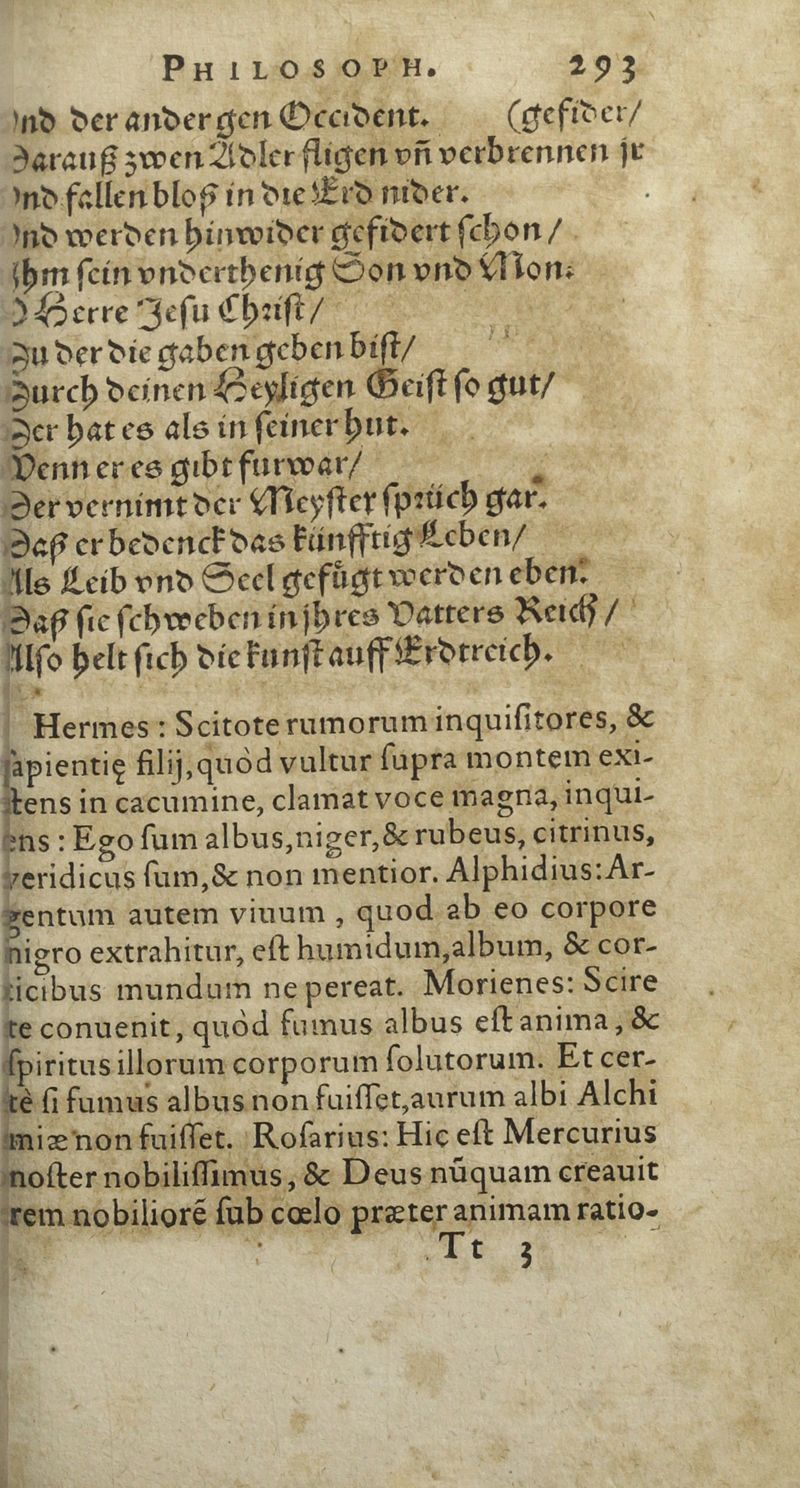 PHILOSOPH. 293
nd der ander gen Occident. (gefider/
Darauß zwen Adler fligen vñ verbrennen jr
nd fallen bloß in die Erd nider.
nd werden hinwider gefidert schon/
jhm sein vnderthenig Son vnd Mon:
O Herre Jesu Christ/
Zu der die gaben geben bist/
Durch deinen Heyligen Geist so gut/
Der hat es als in seiner hut.
Denn er es gibt furwar/
Der vernimt der Meyster sprüch gar.
Daß er bedenck das künfftig Leben/
Als Leib vnd Seel gefügt werden eben.
Daß sie schweben in jhres Vatters Reich/
Also helt sich die kunst auff Erdtreich.
Hermes : Scitote rumorum inquiſitores, &
ſapientię filij, quòd vultur ſupra montem exi-
ſtens in cacumine, clamat voce magna, inqui-
ens : Ego ſum albus, niger, & rubeus, citrinus,
veridicus ſum, & non mentior. Alphidius: Ar-
gentum autem viuum , quod ab eo corpore
nigro extrahitur, eſt humidum, album, & cor-
ticibus mundum ne pereat. Morienes: Scire
te conuenit, quòd fumus albus eſt anima, &
ſpiritus illorum corporum ſolutorum. Et cer-
tè ſi fumus albus non fuiſſet, aurum albi Alchi
miæ non fuiſſet. Roſarius: Hic eſt Mercurius
noſter nobiliſſimus, & Deus nũquam creauit
rem nobiliorẽ ſub cœlo præter animam ratio-
Tt 3